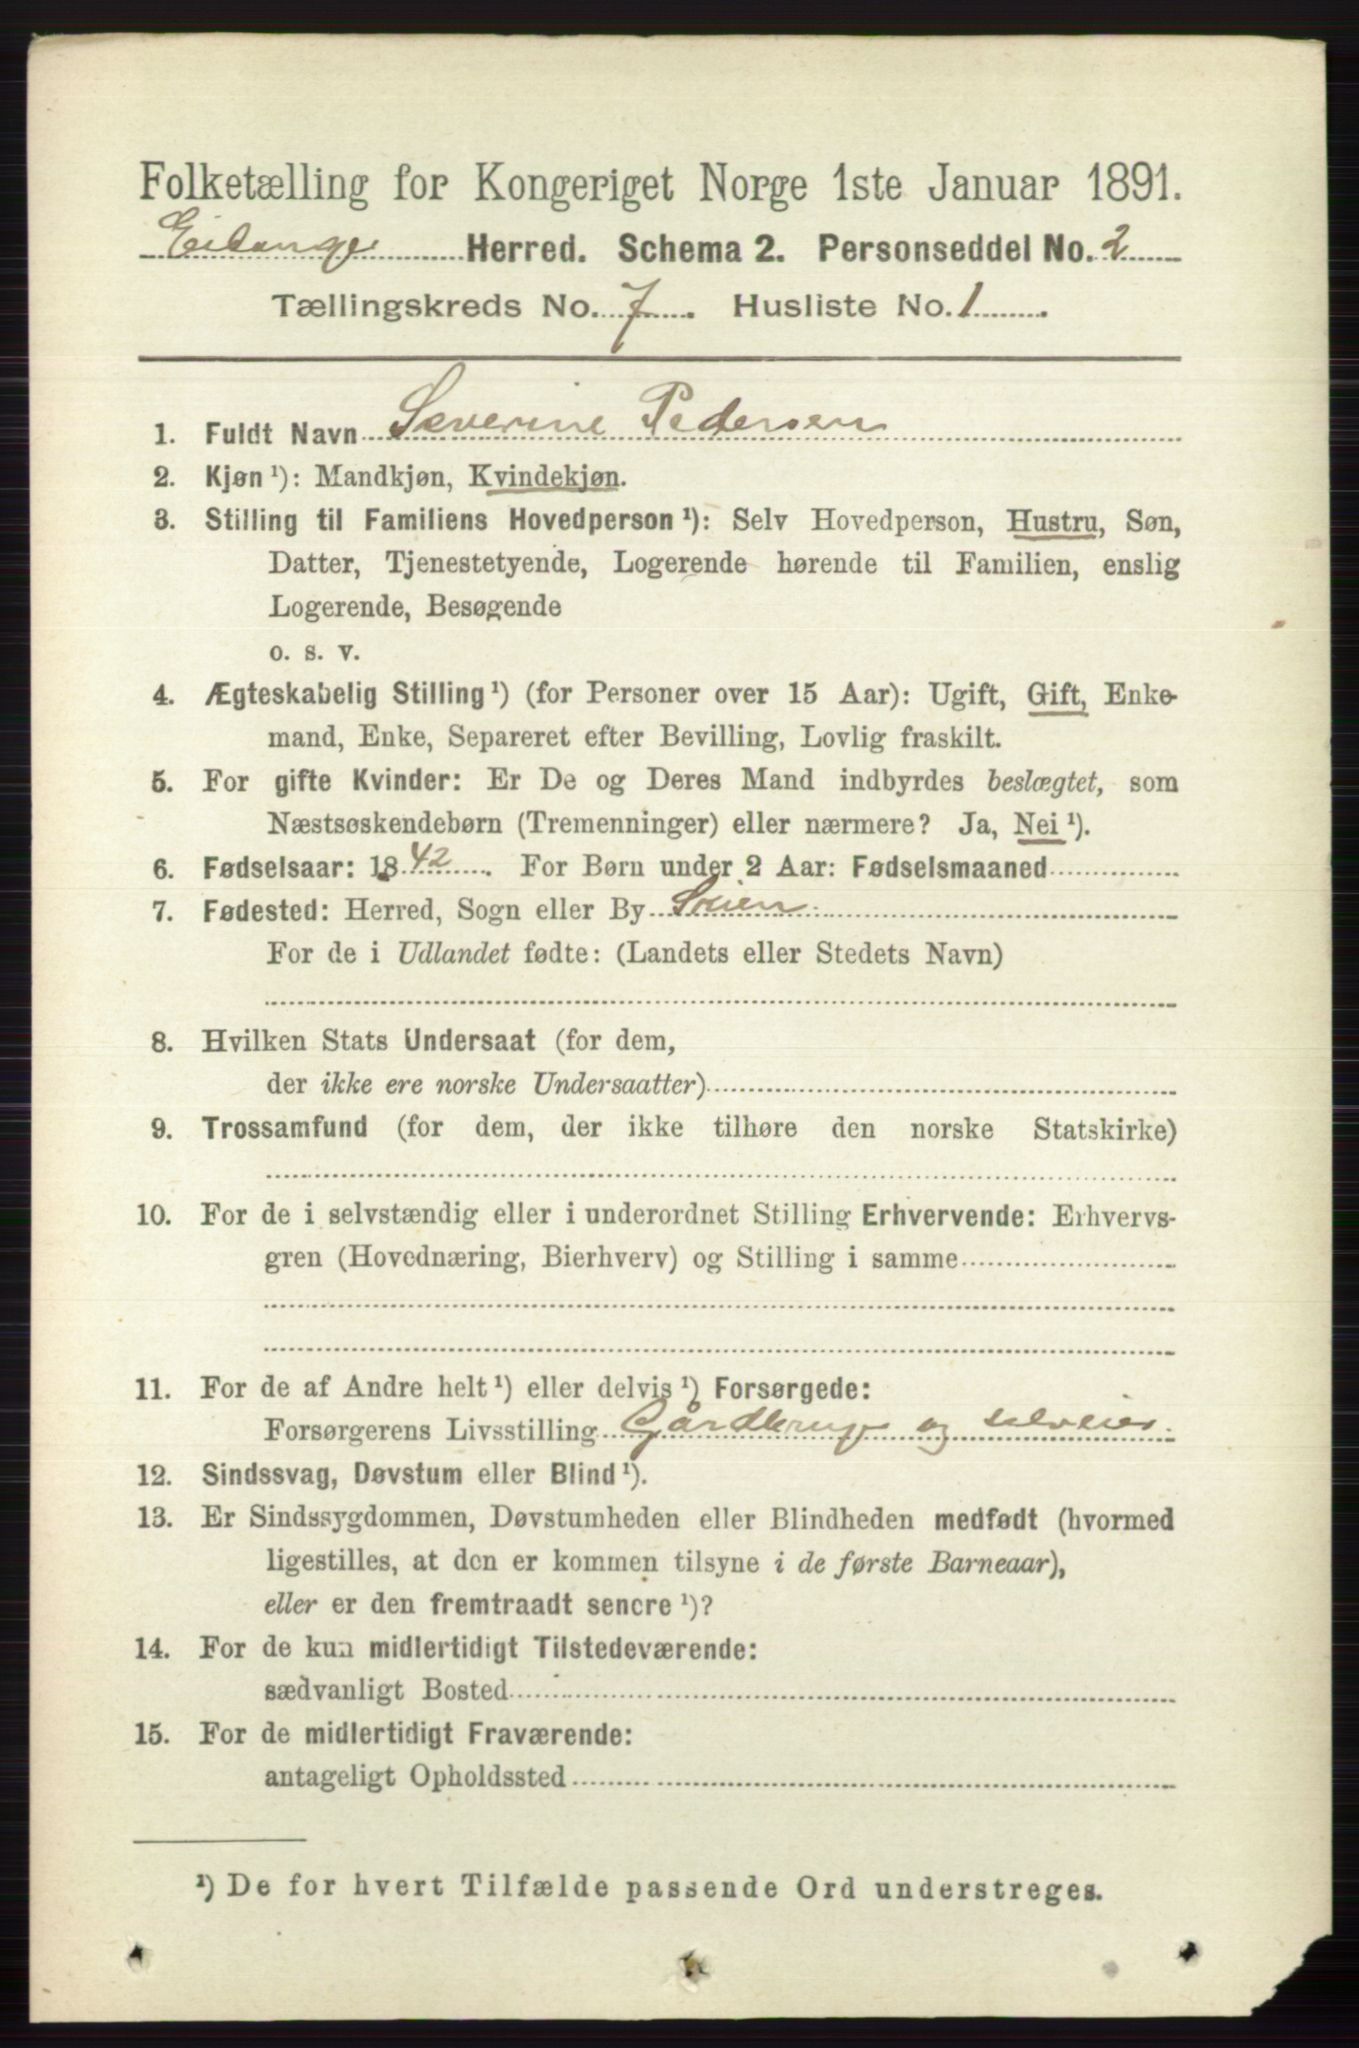 Folketælling for Kongeriget Norge 1ste Januar 1891.
Eidanger Herred. Schema 2. Personseddel No. 2
Tællingskreds No. 7. Husliste No. 1.
1. Fuldt Navn Severine Pedersen
2. Kjøn ¹): Mandkjøn, Kvindekjøn.
3. Stilling til Familiens Hovedperson ¹): Selv Hovedperson, Hustru, Søn,
Datter, Tjenestetyende, Logerende hørende til Familien, enslig
Logerende, Besøgende
o. s. v.
4. Ægteskabelig Stilling ¹) (for Personer over 15 Aar): Ugift, Gift, Enke-
mand, Enke, Separeret efter Bevilling, Lovlig fraskilt.
5. For gifte Kvinder: Er De og Deres Mand indbyrdes beslægtet, som
Næstsøskendebørn (Tremenninger) eller nærmere? Ja, Nei ¹).
6. Fødselsaar: 1842. For Børn under 2 Aar: Fødselsmaaned
7. Fødested: Herred, Sogn eller By
For de i Udlandet fødte: (Landets eller Stedets Navn)
8. Hvilken Stats Undersaat (for dem,
der ikke ere norske Undersaatter)
9. Trossamfund (for dem, der ikke tilhøre den norske Statskirke)
10. For de i selvstændig eller i underordnet Stilling Erhvervende: Erhvervs-
gren (Hovednæring, Bierhverv) og Stilling i samme
11. For de af Andre helt ¹) eller delvis ¹) Forsørgede:
Forsørgerens Livsstilling Gårdbruger og selveier.
12. Sindssvag, Døvstum eller Blind ¹).
13. Er Sindssygdommen, Døvstumheden eller Blindheden medfødt (hvormed
ligestilles, at den er kommen tilsyne i de første Barneaar),
eller er den fremtraadt senere ¹)?
14. For de kun midlertidigt Tilstedeværende:
sædvanligt Bosted
15. For de midlertidigt Fraværende:
antageligt Opholdssted
¹) De for hvert Tilfælde passende Ord understreges.